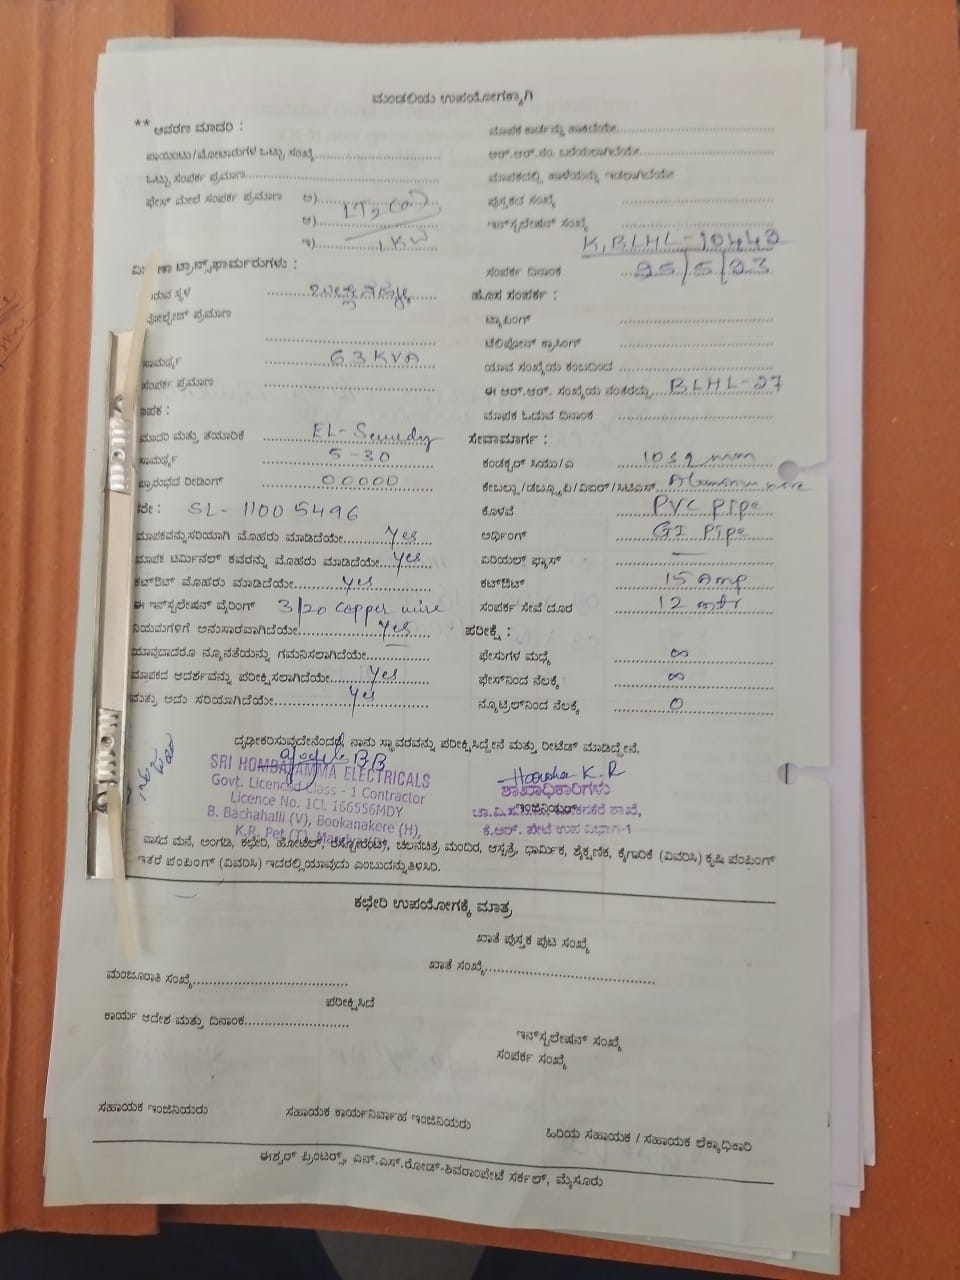 ಮಂಡಲಿಯ ಉಪಯೋಗಕ್ಕಾಗಿ
** ಆವರಣ ಮಾದರಿ :
ಪಾಯಿಂಟು/ಮೋಟಾರುಗಳ ಒಟ್ಟು ಸಂಖ್ಯೆ
ಒಟ್ಟು ಸಂಪರ್ಕ ಪ್ರಮಾಣ
ಫೇಸ್ ಮೇಲೆ ಸಂಪರ್ಕ ಪ್ರಮಾಣ ಅ)
ಆ)
ಇ) 1 KW
ಟ್ರಾನ್ಸ್‌ಫಾರ್ಮರುಗಳು :
ರುವ ಸ್ಥಳ
ವೋಲ್ಟೇಜ್ ಪ್ರಮಾಣ
ಸಾಮರ್ಥ್ಯ 63 KVA
ಸಂಪರ್ಕ ಪ್ರಮಾಣ
ಾಪಕ :
ಮಾದರಿ ಮತ್ತು ತಯಾರಿಕೆ EL-
ಸಾಮರ್ಥ್ಯ 5-30
ಪ್ರಾರಂಭದ ರೀಡಿಂಗ್ 00000
SL- 11005496
ಮಾಪಕವನ್ನು ಸರಿಯಾಗಿ ಮೊಹರು ಮಾಡಿದೆಯೇ yes
ಮಾಪಕ ಟರ್ಮಿನಲ್ ಕವರನ್ನು ಮೊಹರು ಮಾಡಿದೆಯೇ yes
ಕಟ್‌ಔಟ್ ಮೊಹರು ಮಾಡಿದೆಯೇ yes
ಈ ಇನ್‌ಸ್ಟಲೇಷನ್ ವೈರಿಂಗ್ 3/20 copper wire
ನಿಯಮಗಳಿಗೆ ಅನುಸಾರವಾಗಿದೆಯೇ yes
ಯಾವುದಾದರೂ ನ್ಯೂನತೆಯನ್ನು ಗಮನಿಸಲಾಗಿದೆಯೇ
ಮಾಪಕದ ಆದರ್ಶವನ್ನು ಪರೀಕ್ಷಿಸಲಾಗಿದೆಯೇ yes
ಮತ್ತು ಅದು ಸರಿಯಾಗಿದೆಯೇ yes
ಮಾಪಕ ಕಾರ್ಡನ್ನು ಹಾಕಿದೆಯೇ
ಆರ್.ಆರ್.ನಂ. ಬರೆಯಲಾಗಿದೆಯೇ
ಮಾಪಕದಲ್ಲಿ ಹಾಳೆಯನ್ನು ಇಡಲಾಗಿದೆಯೇ
ಪುಸ್ತಕದ ಸಂಖ್ಯೆ
ಇನ್‌ಸ್ಟಲೇಷನ್ ಸಂಖ್ಯೆ
K, BLHL-10442
ಸಂಪರ್ಕ ದಿನಾಂಕ 25/5/23
ಹೊಸ ಸಂಪರ್ಕ :
ಟ್ಯಾಪಿಂಗ್
ಟೆಲಿಫೋನ್ ಕ್ರಾಸಿಂಗ್
ಯಾವ ಸಂಖ್ಯೆಯ ಕಂಬದಿಂದ
ಈ ಆರ್.ಆರ್. ಸಂಖ್ಯೆಯ ನಂತರದ್ದು BLHL-27
ಮಾಪಕ ಓದುವ ದಿನಾಂಕ
ಸೇವಾಮಾರ್ಗ :
ಕಂಡಕ್ಟರ್ ಸಿಯು/ಎ 10 sq mm
ಕೇಬಲ್ಲು/ಡಬ್ಲ್ಯೂಪಿ/ವಿಐಆರ್/ಸಿಟಿಎಸ್ Aluminum wire
ಕೊಳವೆ PVC pipe
ಅರ್ಥಿಂಗ್ GI pipe
ಏರಿಯಲ್ ಫ್ಯೂಸ್ —
ಕಟ್‌ಔಟ್ 15 Amp
ಸಂಪರ್ಕ ಸೇವೆ ದೂರ 12 mtr
ಪರೀಕ್ಷೆ :
ಫೇಸುಗಳ ಮಧ್ಯೆ ∞
ಫೇಸ್‌ನಿಂದ ನೆಲಕ್ಕೆ ∞
ನ್ಯೂಟ್ರಲ್‌ನಿಂದ ನೆಲಕ್ಕೆ 0
ದೃಢೀಕರಿಸುವುದೇನೆಂದರೆ, ನಾನು ಸ್ಥಾವರವನ್ನು ಪರೀಕ್ಷಿಸಿದ್ದೇನೆ ಮತ್ತು ರೀಟೆಡ್ ಮಾಡಿದ್ದೇನೆ.
SRI HOMBALAMMA ELECTRICALS
Govt. Licenced Class - 1 Contractor
Licence No. 1CL 166556MDY
B. Bachahalli (V), Bookanakere (H),
K.R. Pet (T), Mandya
Harsha K.R
ಶಾಖಾಧಿಕಾರಿಗಳು
ಕೆ.ಆರ್. ಪೇಟೆ ಉಪ ವಿಭಾಗ-1
ವಾಸದ ಮನೆ, ಅಂಗಡಿ, ಕಛೇರಿ, ಹೋಟೆಲ್, ರೆಸ್ಟೋರೆಂಟ್, ಚಲನಚಿತ್ರ ಮಂದಿರ, ಆಸ್ಪತ್ರೆ, ಧಾರ್ಮಿಕ, ಶೈಕ್ಷಣಿಕ, ಕೈಗಾರಿಕೆ (ವಿವರಿಸಿ) ಕೃಷಿ ಪಂಪಿಂಗ್
ಇತರೆ ಪಂಪಿಂಗ್ (ವಿವರಿಸಿ) ಇದರಲ್ಲಿ ಯಾವುದು ಎಂಬುದನ್ನು ತಿಳಿಸಿರಿ.
ಕಛೇರಿ ಉಪಯೋಗಕ್ಕೆ ಮಾತ್ರ
ಖಾತೆ ಪುಸ್ತಕ ಪುಟ ಸಂಖ್ಯೆ
ಖಾತೆ ಸಂಖ್ಯೆ
ಮಂಜೂರಾತಿ ಸಂಖ್ಯೆ
ಪರೀಕ್ಷಿಸಿದೆ
ಕಾರ್ಯ ಆದೇಶ ಮತ್ತು ದಿನಾಂಕ
ಇನ್‌ಸ್ಟಲೇಷನ್ ಸಂಖ್ಯೆ
ಸಂಪರ್ಕ ಸಂಖ್ಯೆ
ಸಹಾಯಕ ಇಂಜಿನಿಯರು
ಸಹಾಯಕ ಕಾರ್ಯನಿರ್ವಾಹ ಇಂಜಿನಿಯರು
ಹಿರಿಯ ಸಹಾಯಕ / ಸಹಾಯಕ ಲೆಕ್ಕಾಧಿಕಾರಿ
ಈಶ್ವರ್ ಪ್ರಿಂಟರ್ಸ್, ಎನ್.ಎಸ್.ರೋಡ್-ಶಿವರಾಂಪೇಟೆ ಸರ್ಕಲ್, ಮೈಸೂರು